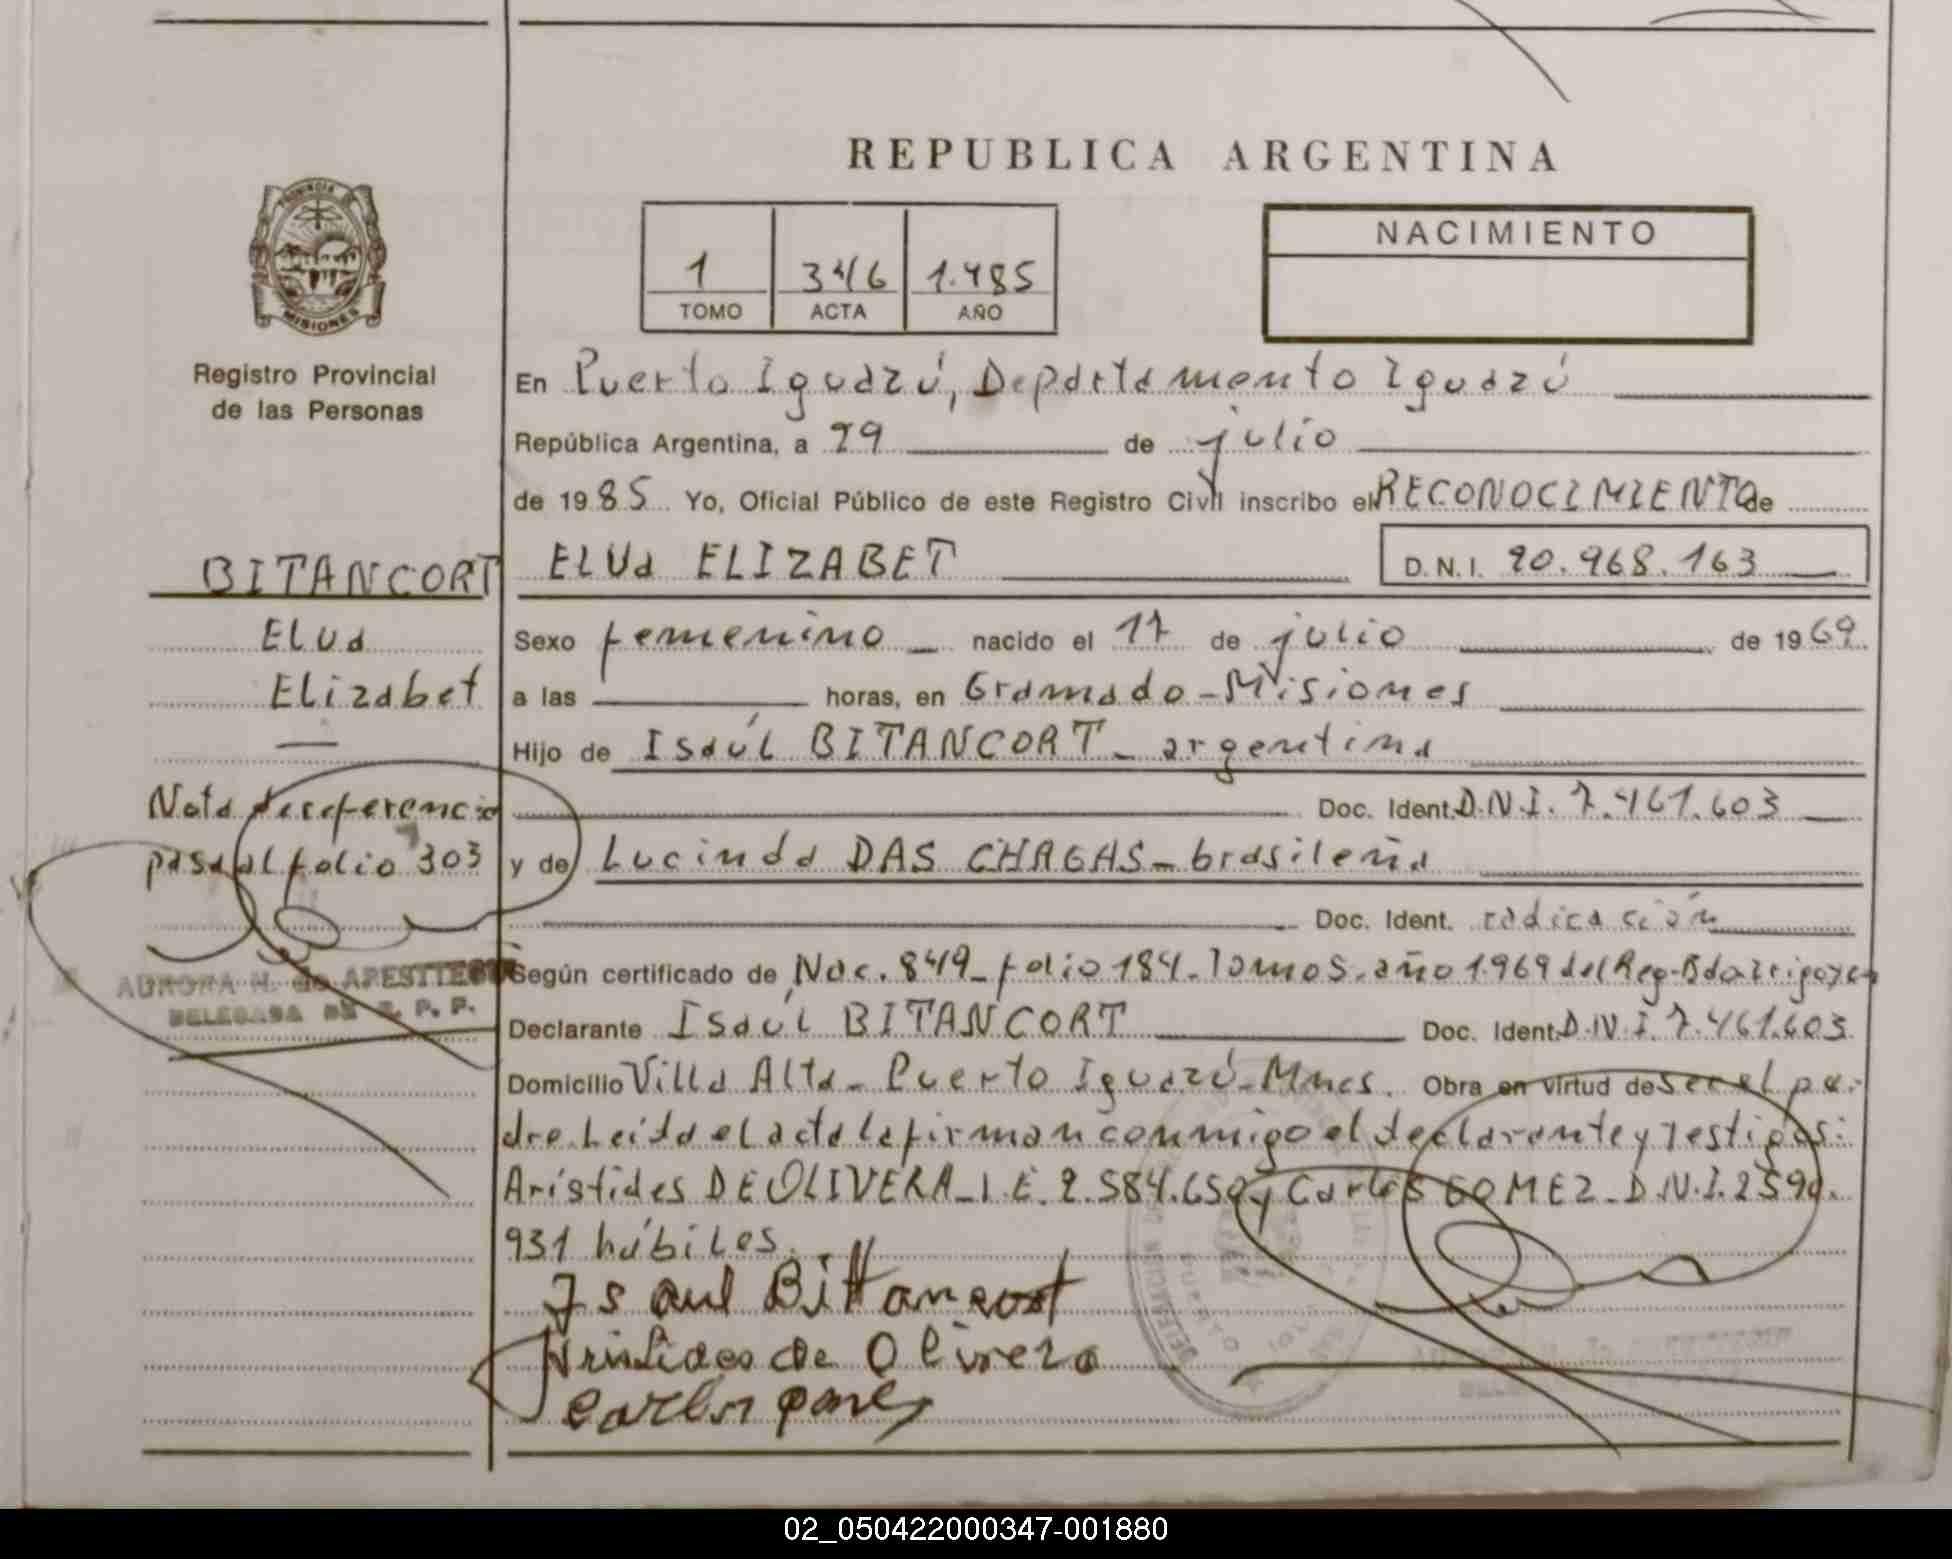 REPUBLICA ARGENTINA
PROVINCIA DE
MISIONES
Registro Provincial
de las Personas
1 346 1.985
TOMO ACTA AÑO
NACIMIENTO
En Puerto Iguazú, Departamento Iguazú
República Argentina, a 29 de julio
de 1985 Yo, Oficial Público de este Registro Civil inscribo el RECONOCIMIENTO de
BITANCORT
Elua
Elizabet
Nota de referencia
pasa al folio 303
AURORA H. de
DELEGADA DE R. P. P.
ELUa ELIZABET D.N.I. 20.968.163
Sexo femenino nacido el 17 de julio de 1969
a las horas, en Gramado - Misiones
Hijo de Isaúl BITANCORT - argentina
Doc. Ident. D.N.I. 7.461.603
y de Lucinda DAS CHAGAS - brasileña
Doc. Ident. radicación
Según certificado de Nac. 849 - folio 184 - Tomo 5 - año 1.969 del Reg. Bdo. Irigoyen
Declarante Isaúl BITANCORT Doc. Ident. D.N.I. 7.461.603.
Domicilio Villa Alta - Puerto Iguazú - Mnes. Obra en virtud de ser el pa-
dre. Leída el acta la firman conmigo el declarante y testigos:
Arístides DE OLIVERA - I.E. 2.584.659 y Carlos GOMEZ - D.N.I. 2590.
931 hábiles.
Isaul Bittancort
Aristides de Olivera
Carlos Gomez
02_050422000347-001880